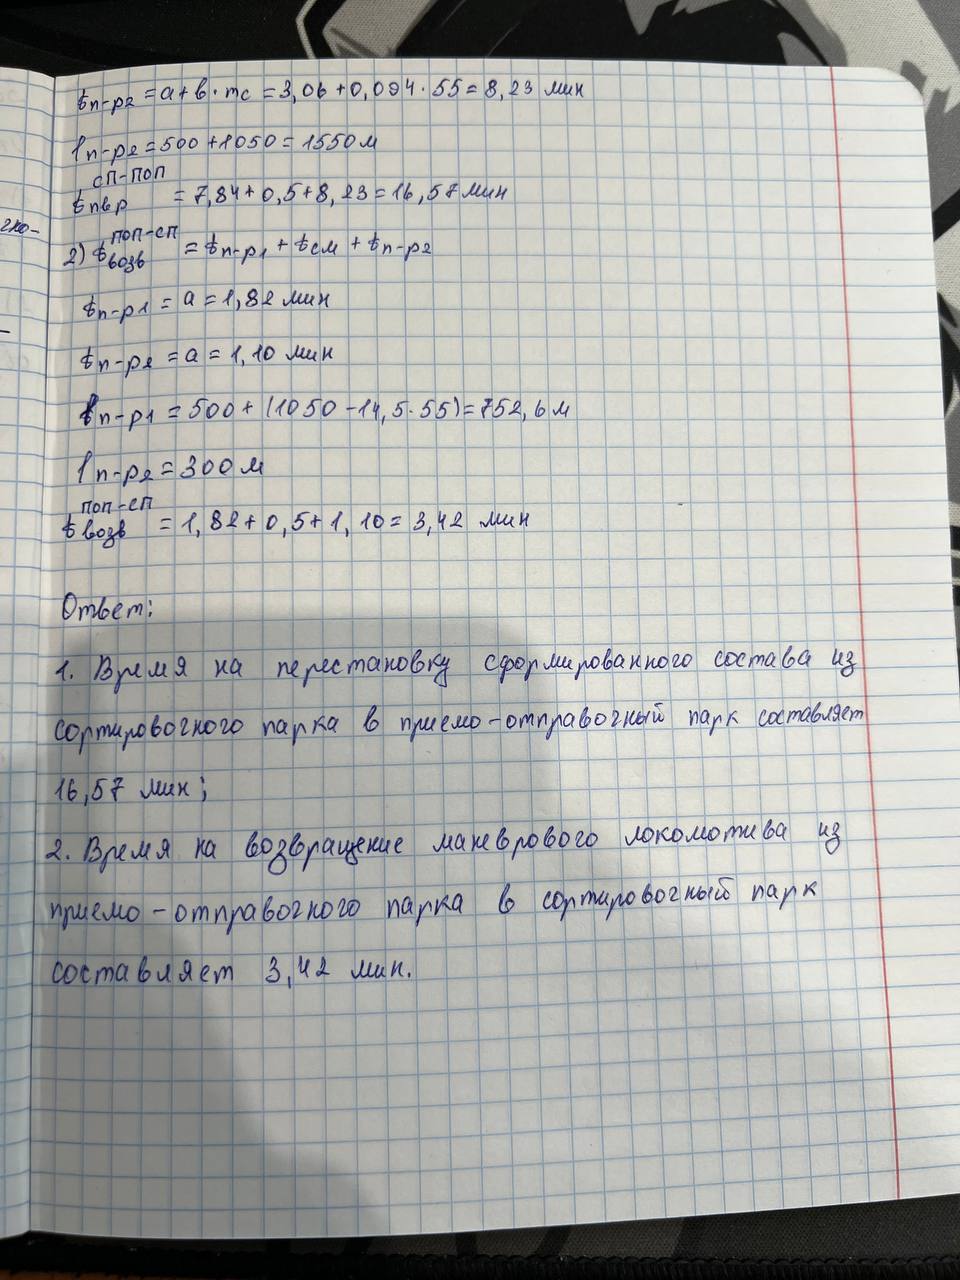 t п-р2 = a + b · mс = 3,06 + 0,094 · 55 = 8,23 мин
l п-р2 = 500 + 1050 = 1550 м
t пвр сп-поп = 7,84 + 0,5 + 8,23 = 16,57 мин
2) t возв поп-сп = t п-р1 + t см + t п-р2
t п-р1 = a = 1,82 мин
t п-р2 = a = 1,10 мин
l п-р1 = 500 + (1050 - 14,5 · 55) = 752,6 м
l п-р2 = 300 м
t возв поп-сп = 1,82 + 0,5 + 1,10 = 3,42 мин
Ответ:
1. Время на перестановку сформированного состава из
сортировочного парка в приемо-отправочный парк составляет
16,57 мин;
2. Время на возвращение маневрового локомотива из
приемо-отправочного парка в сортировочный парк
составляет 3,42 мин.